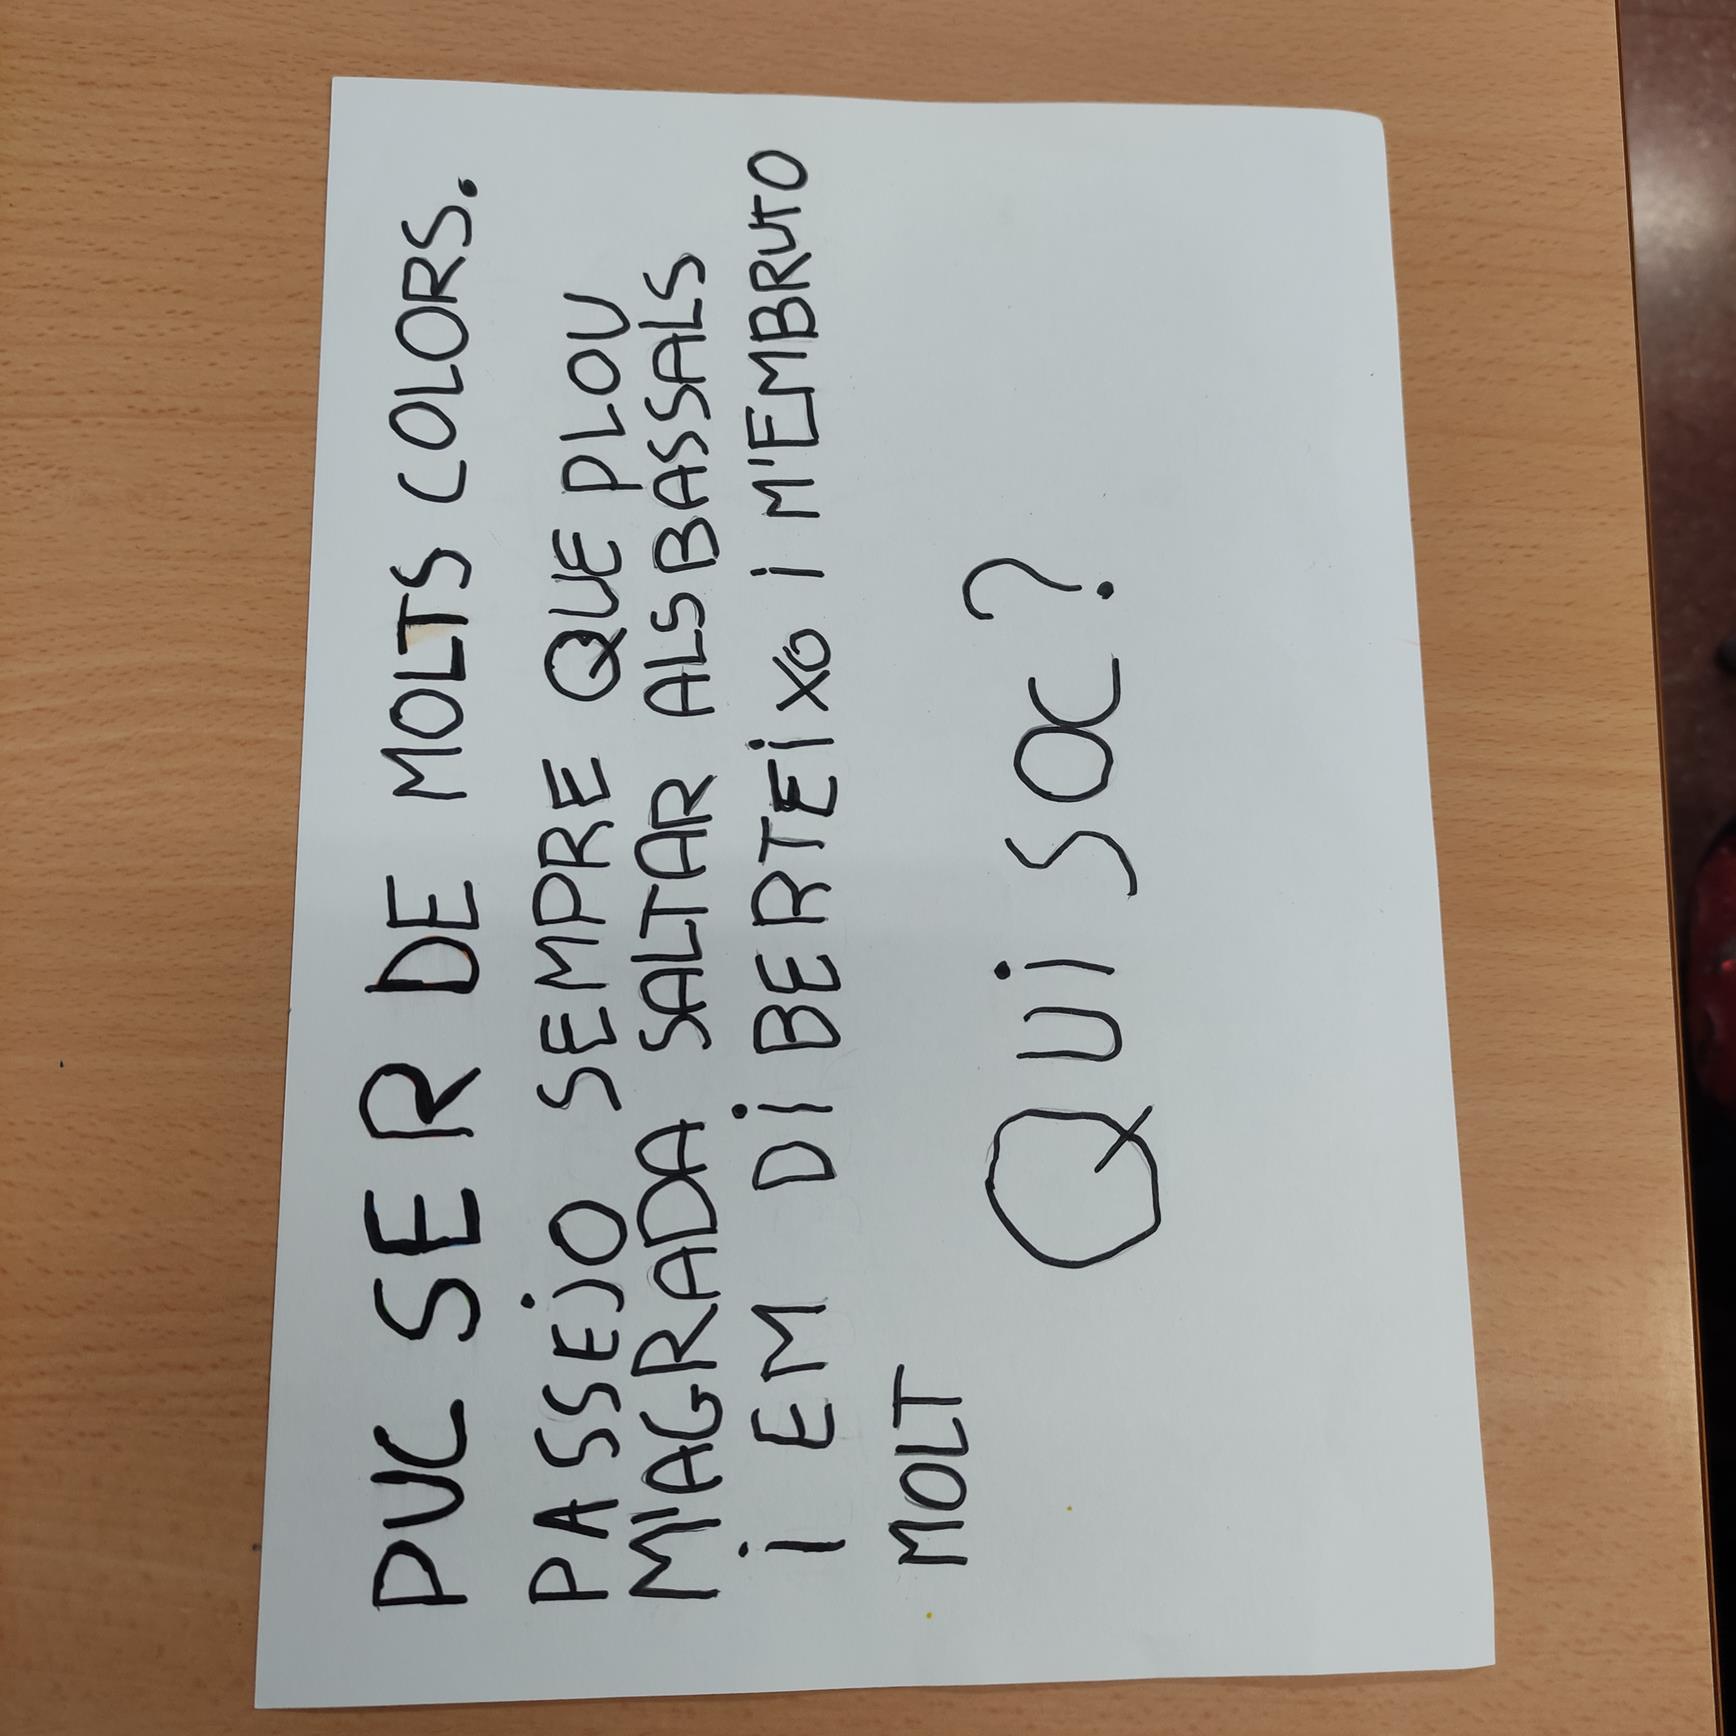 PUC SER DE MOLTS COLORS.
PASSEjO SEMPRE QUE PLOU
M'AGRADA SALTAR ALS BASSALS
i EM DiBERTEiXO i M'EMBRUTO
MOLT
QUi SOC?